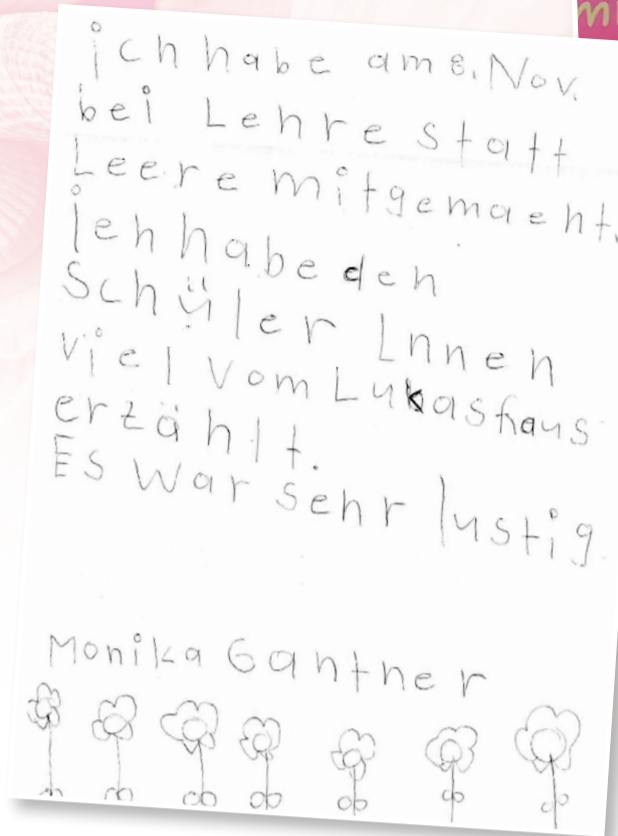 ich habe am 8. Nov.
bei Lehre statt
Leere mitgemacht.
Ich habe den
Schüler Innen
viel vom Lukashaus
erzählt.
Es war sehr lustig
Monika Gantner